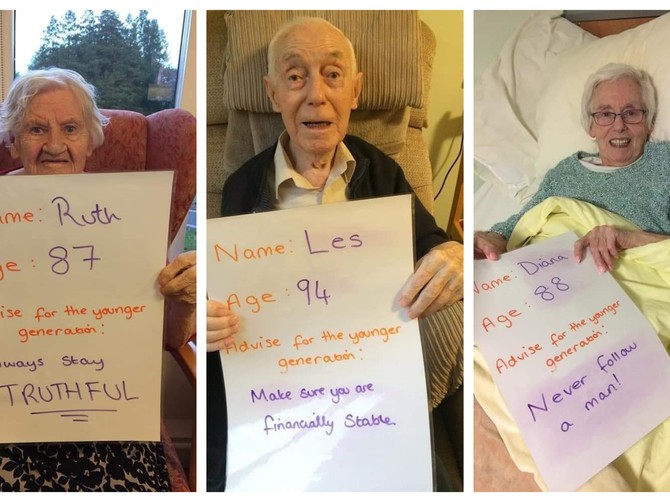 ame: Ruth
ge : 87
vise for the younger
generation:
lways stay
TRUTHFUL
Name: Les
Age : 94
Advise for the younger
generation:
Make sure you are
financially stable.
Name: Diana
Age : 88
Advise for the younger
generation:
Never follow
a man!